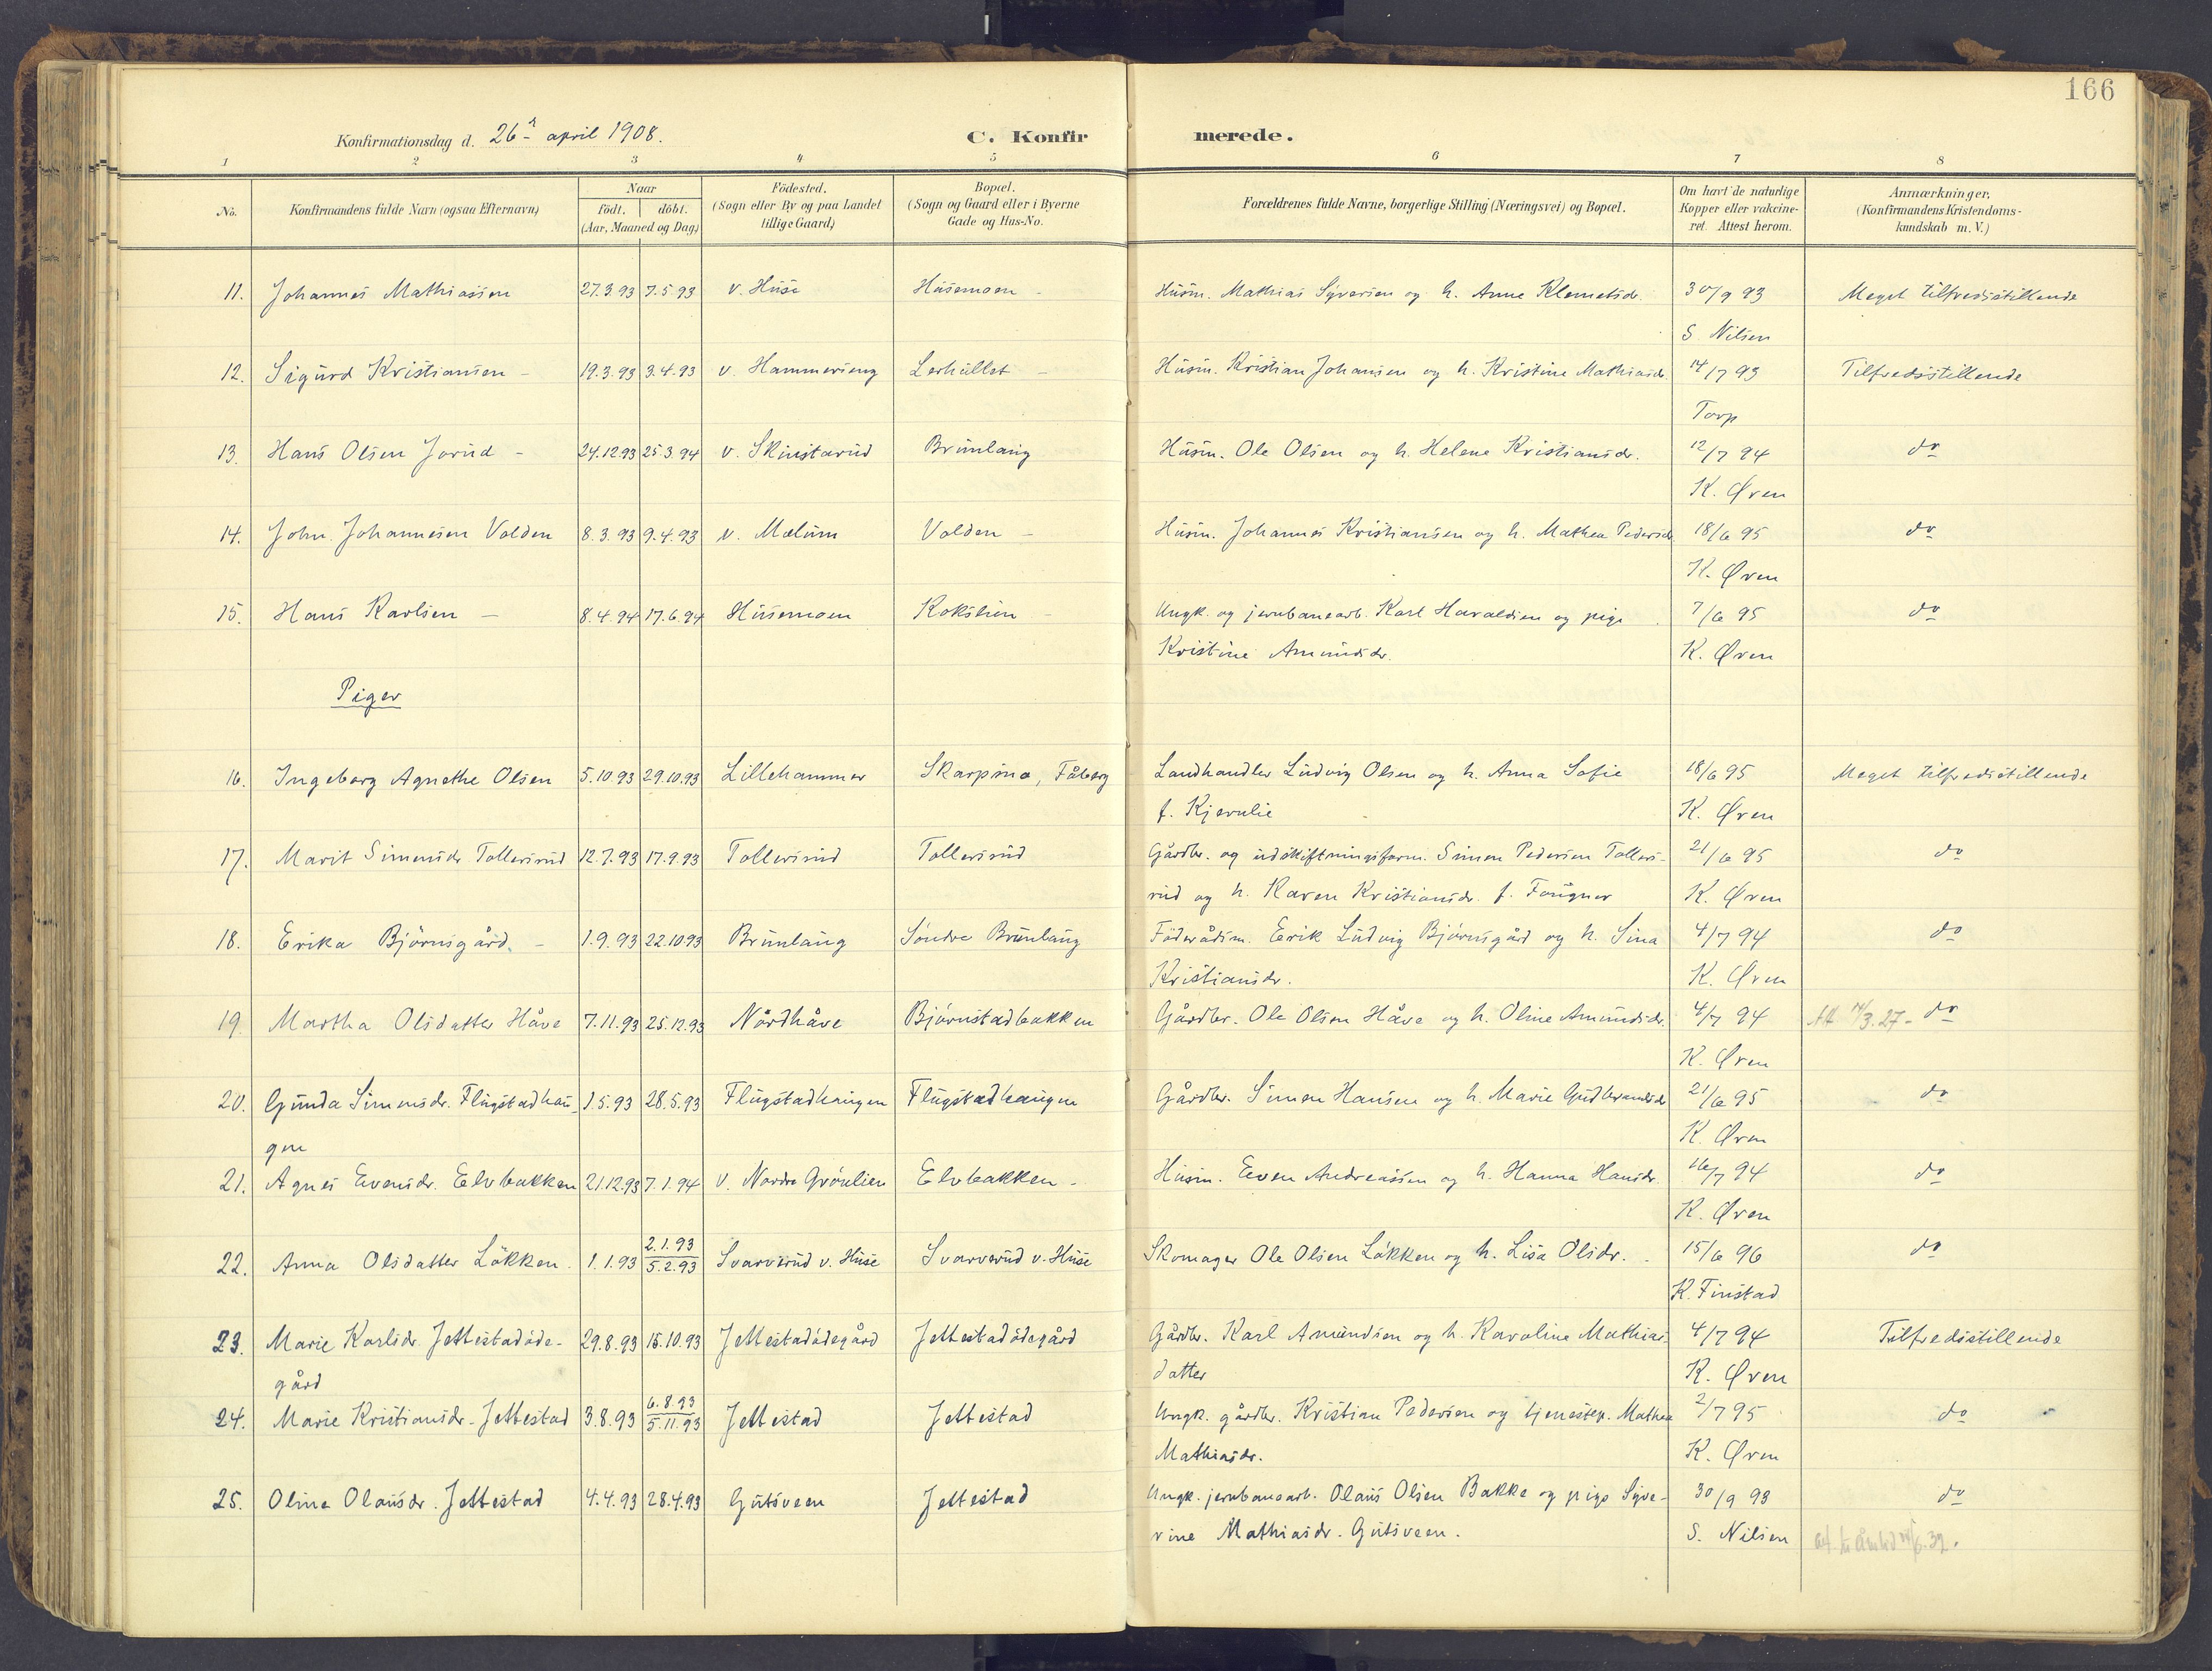 166
Konfirmationsdag d. 26de april 1908.
C. Konfirmerede.
1 2 3 4 5 6 7 8
No.
Konfirmandens fulde Navn (ogsaa Efternavn)
Naar
födt. döbt.
(Aar, Maaned og Dag)
Födested.
(Sogn eller By og paa Landet
tillige Gaard)
Bopæl.
(Sogn og Gaard eller i Byerne
Gade og Hus-No.
Forældrenes fulde Navne, borgerlige Stilling (Næringsvei) og Bopæl.
Om havt de naturlige
Kopper eller vakcine-
ret. Attest herom.
Anmærkninger,
(Konfirmandens Kristendoms-
kundskab m. V.)
11. Johannes Mathiassen 27.3.93 7.5.93 v. Huse Husemoen – Husm. Mathias Syversen og h. Anne Klemetsdr. 30/9 93 Meget tilfredsstillende
S. Nilsen
12. Sigurd Kristiansen – 19.3.93 3.4.93 v. Hammerseng Lerhullet – Husm. Kristian Johansen og h. Kristine Mathiasdr. 14/7 93 Tilfredsstillende
Torp
13. Hans Olsen Jorud – 24.12.93 25.3.94 v. Skinstarud Brunlaug Husm. Ole Olsen og h. Helene Kristiansdr. 12/7 94 do
K. Øren
14. John Johannesen Volden 8.3.93 9.4.93 v. Mælum Volden – Husm. Johannes Kristiansen og h. Mathea Pedersdr. 18/6 95 do
K. Øren
15. Hans Karlsen – 8.4.94 17.6.94 Husemoen Kokslien – Ungk. og jernbanearb. Karl Haraldsen og pige 7/6 95 do
Kristine Amundsdr. K. Øren
Piger
16. Ingeborg Agnethe Olsen 5.10.93 29.10.93 Lillehammer Skarpsno, Fåberg Landhandler Ludvig Olsen og h. Anna Sofie 18/6 95 Meget tilfredsstillende
f. Kjernlie K. Øren
17. Marit Simensdr. Tollersrud 12.7.93 17.9.93 Tollersrud Tollersrud Gårdbr. og udskiftningsform. Simen Pedersen Tollers- 21/6 95 do
rud og h. Karen Kristiansdr. f. Fougner K. Øren
18. Erika Björnsgård. – 1.9.93 22.10.93 Brunlaug Söndre Brunlaug Föderådsm. Erik Ludvig Björnsgård og h. Sina 4/7 94 do
Kristiansdr. K. Øren
19. Martha Olsdatter Håve 7.11.93 25.12.93 Nordhåve Björnstadbakken Gårdbr. Ole Olsen Håve og h. Oline Amundsdr. 4/7 94 do
K. Øren
20. Gunda Simensdr. Flugstadhau- 1.5.93 28.5.93 Flugstadhaugen Flugstadhaugen Gårdbr. Simen Hansen og h. Marie Gudbrandsdr. 21/6 95 do
gen K. Øren
21. Agnes Evensdr. Elvbakken 21.12.93 7.1.94 v. Nordre Grönlien Elvbakken – Husm. Even Andreassen og h. Hanna Hansdr. 16/7 94 do
K. Øren
22. Anna Olsdatter Løkken. 1.1.93 2.1.93 5.2.93 Svarverud v. Huse Svarverud v. Huse Skomager Ole Olsen Løkken og h. Lisa Olsdr. 15/6 96 do
K. Finstad
23. Marie Karlsdr. Jettestadöde- 29.8.93 15.10.93 Jettestadödegård Jettestadödegård Gårdbr. Karl Amundsen og h. Karoline Mathias- 4/7 94 Tilfredsstillende
gård datter K. Øren
24. Marie Kristiansdr. Jettestad 3.8.93 6.8.93 5.11.93 Jettestad Jettestad Ungk. gårdbr. Kristian Pedersen og tjenestep. Mathea 2/7 95 do
Mathiasdr. K. Øren
25. Oline Olausdr. Jettestad 4.4.93 28.4.93 Gutsveen Jettestad Ungk. jernbanearb. Olaus Olsen Bakke og pige Syve- 30/9 93 do
rine Mathiasdr. Gutsveen. S. Nilsen